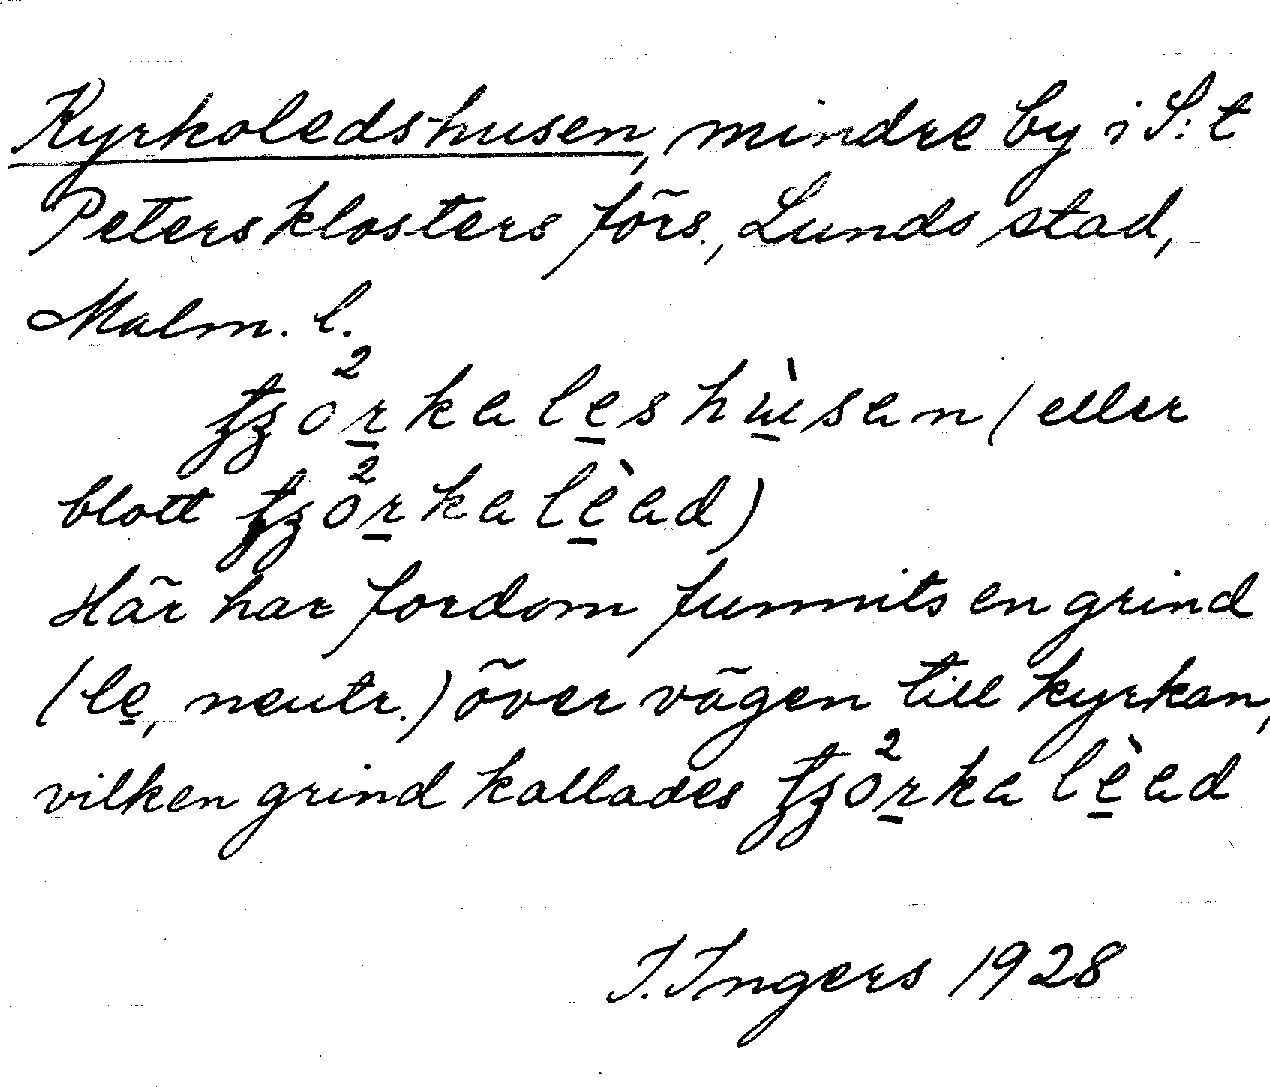 Kyrkoledshusen, mindre by i S:t
Petersklosters förs., Lunds stad,
Malm. l.
tʒö²rkaleshùsan (eller
blott tʒö²rkalèad)
Här har fordom funnits en grind
(le, neutr.) över vägen till kyrkan,
vilken grind kallades tʒö²rkalèad
I. Ingers 1928